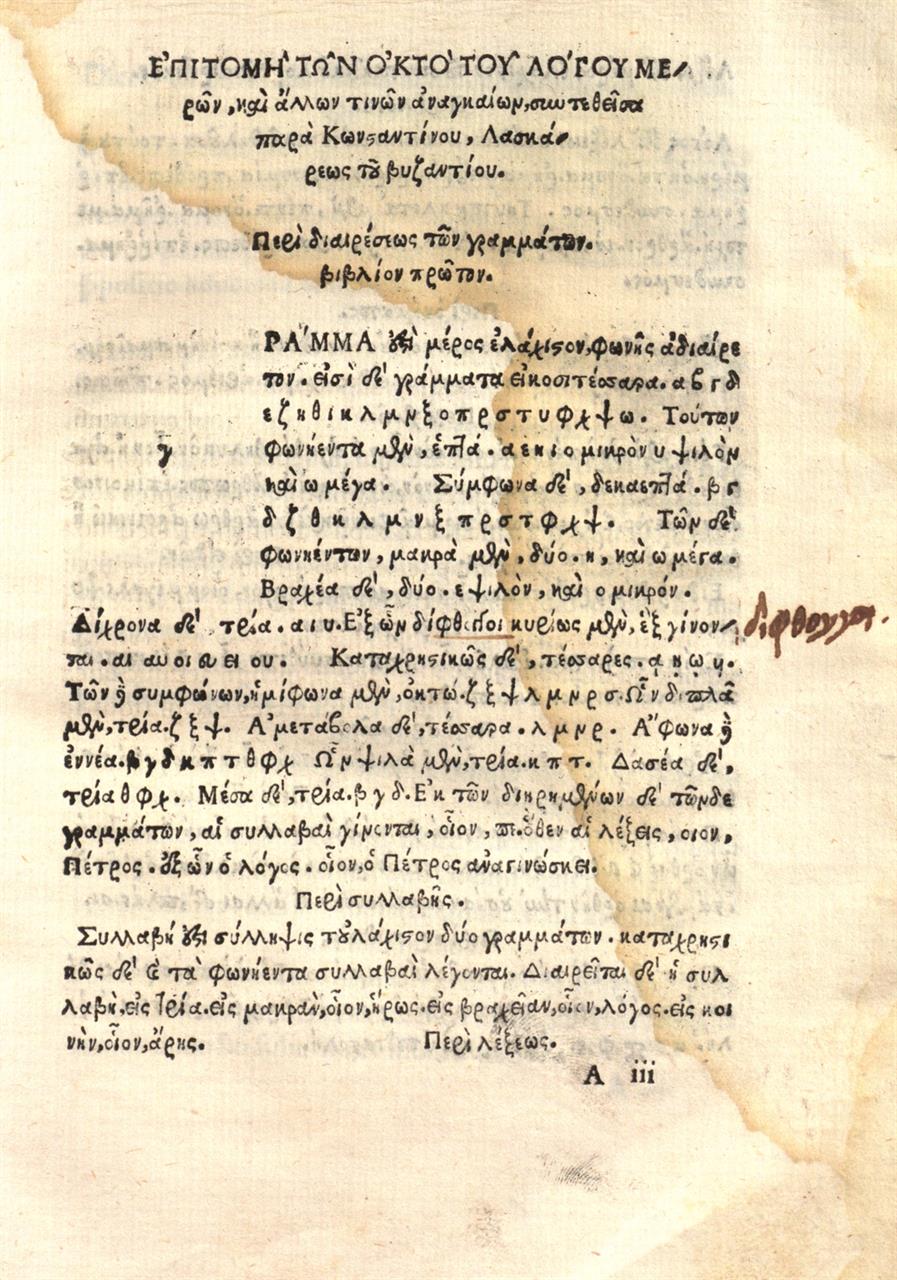 ἘΠΙΤΟΜῊ ΤΩ͂Ν ὈΚΤῸ ΤΟΥ͂ ΛΌΓΟΥ ΜΕ
ρῶν, καὶ ἄλλων τινῶν ἀναγκαίων, συντεθεῖσα
παρὰ Κωνσταντίνου, Λασκά
ρεως τοῦ βυζαντίου.
Περὶ διαιρέσεως τῶν γραμμάτων.
βιβλίον πρῶτον.
ΡΆΜΜΑ ἐστὶ μέρος ἐλάχιστον, φωνῆς ἀδιαίρε
τον. εἰσὶ δὲ γράμματα εἰκοσιτέσσαρα. α β γ δ
ε ζ η θ ι κ λ μ ν ξ ο π ρ σ τ υ φ χ ψ ω. Τούτων
γ
φωνήεντα μὲν, ἑπτά. α ε η ι ο μικρὸν υ ψιλὸν
καὶ ω μέγα. Σύμφωνα δὲ, δεκαεπτά. β γ
δ ζ θ κ λ μ ν ξ π ρ σ τ φ χ ψ. Τῶν δὲ
φωνηέντων, μακρὰ μὲν, δύο. η, καὶ ω μέγα.
Βραχέα δὲ, δύο. ε ψιλὸν, καὶ ο μικρόν.
Δίχρονα δὲ τρία. α ι υ. Ἐξ ὧν δίφθογγοι κυρίως μὲν, ἓξ γίνον
διφθογγοι.
ται. αι αυ οι ευ ει ου. Καταχρηστικῶς δὲ, τέσσαρες. ᾳ ῃ ῳ υι.
Τῶν δὲ συμφώνων, ἡμίφωνα μὲν, ὀκτώ. ζ ξ ψ λ μ ν ρ σ. Ὧν διπλᾶ
μὲν, τρία. ζ ξ ψ. Ἀμετάβολα δὲ, τέσσαρα. λ μ ν ρ. Ἄφωνα δὲ
ἐννέα. β γ δ κ π τ θ φ χ Ὧν ψιλὰ μὲν, τρία. κ π τ. Δασέα δὲ,
τρία θ φ χ. Μέσα δὲ, τρία. β γ δ. Ἐκ τῶν διῃρημένων δὲ τῶνδε
γραμμάτων, αἱ συλλαβαὶ γίνονται, οἷον, πε. ὅθεν αἱ λέξεις, οιον,
Πέτρος. ἐξ ὧν ὁ λόγος. οἷον, ὁ Πέτρος ἀναγινώσκει.
Περὶ συλλαβῆς.
Συλλαβή ἐστι σύλληψις τοὐλάχιστον δύο γραμμάτων. καταχρηστι
κῶς δὲ καὶ τὰ φωνήεντα συλλαβαὶ λέγονται. Διαιρεῖται δὲ ἡ συλ
λαβὴ, εἰς τρία. εἰς μακρὰν, οἷον, ἥρως. εἰς βραχεῖαν, οἷον, λόγος. εἰς κοι
νὴν, οἷον, ἄρης. Περὶ λέξεως.
A iii